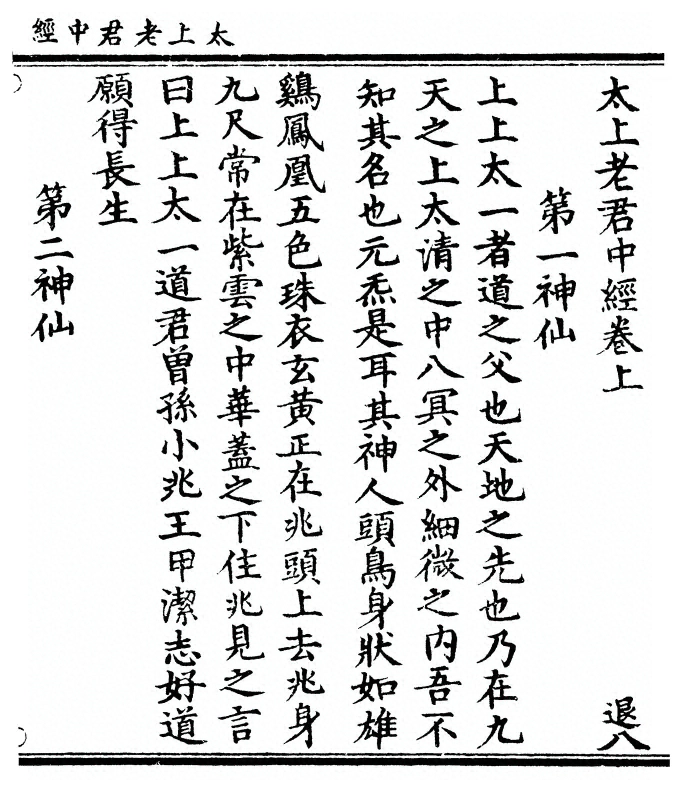 太上老君中經
太上老君中經卷上
退八
第一神仙
上上太一者道之父也天地之先也乃在九
天之上太清之中八冥之外細微之內吾不
知其名也元炁是耳其神人頭鳥身狀如雄
鷄鳳凰五色珠衣玄黃正在兆頭上去兆身
九尺常在紫雲之中華蓋之下住兆見之言
曰上上太一道君曾孫小兆王甲潔志好道
願得長生
第二神仙